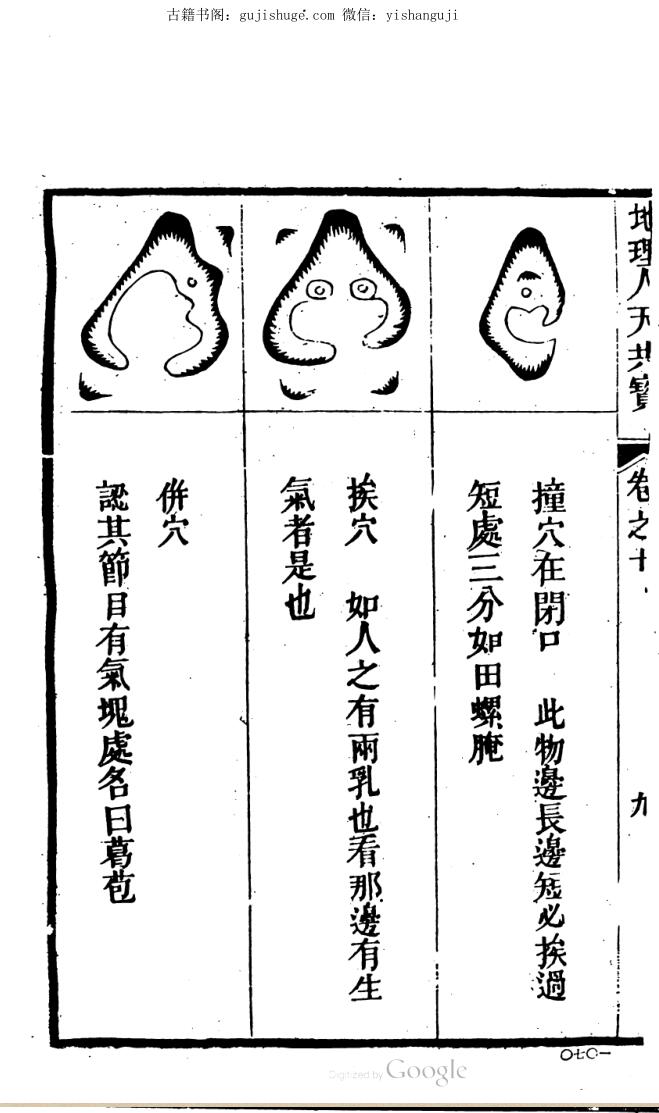 古籍书阁：gujishuge.com 微信：yishanguji
地理人天共寶
卷之十
九
撞穴在閉口 此物邊長邊短必挨過
短處三分如田螺腌
挨穴 如人之有兩乳也看那邊有生
氣者是也
併穴
認其節目有氣塊處名曰葛苞
〇七〇一
Digitized by Google